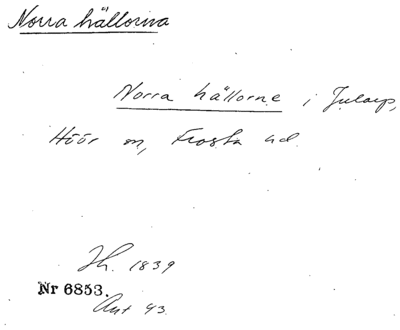 Norra hällorna
Norra hällorne i Jularp,
Höör sn, Frosta hd.
Jh. 1839
Nr 6853.
Avt 43